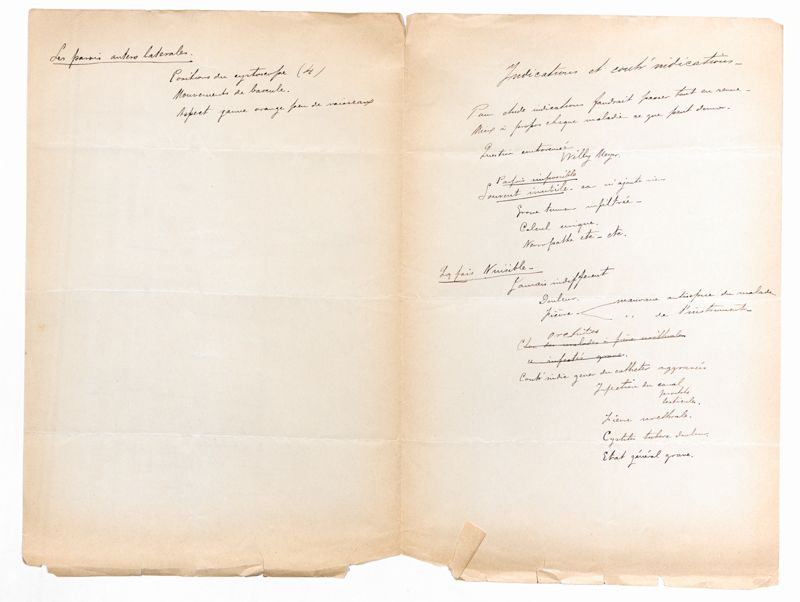 Les parois antero laterales.
Positions du cystoscope (4)
Mouvements de bascule.
Aspect jaune orange peu de vaisseaux
Indications et contr' indications –
Pour étude indications faudrait passer tout en revue –
Mieux à propos chaque maladie ce que peut donner.
Question
Willy Meyer.
Parfois impossible
Souvent inutile. ou n'ajoute rien
Grosse tumeur infiltrée –
Calcul enorme.
Nevropathe etc – etc.
Qq fois Nuisible –
Jamais indifferent
Douleur.
Fièvre. mauvaise antisepsie du malade
" de l'instrument
orchites
Chez des malades à fièvre urethrale
infectés grave.
Contr' indic gener du catheter aggravées
Infection du canal
prostate
testicule.
Fièvre urethrale.
Cystites tubercu douleur.
Etat général grave.